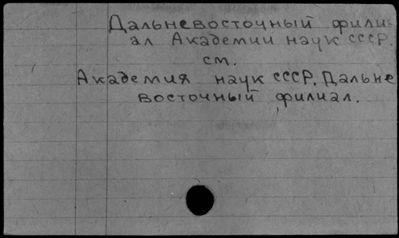 Дальневосточный фили-
ал Академии наук СССР
см.
Академия наук СССР. Дальне
восточный филиал.